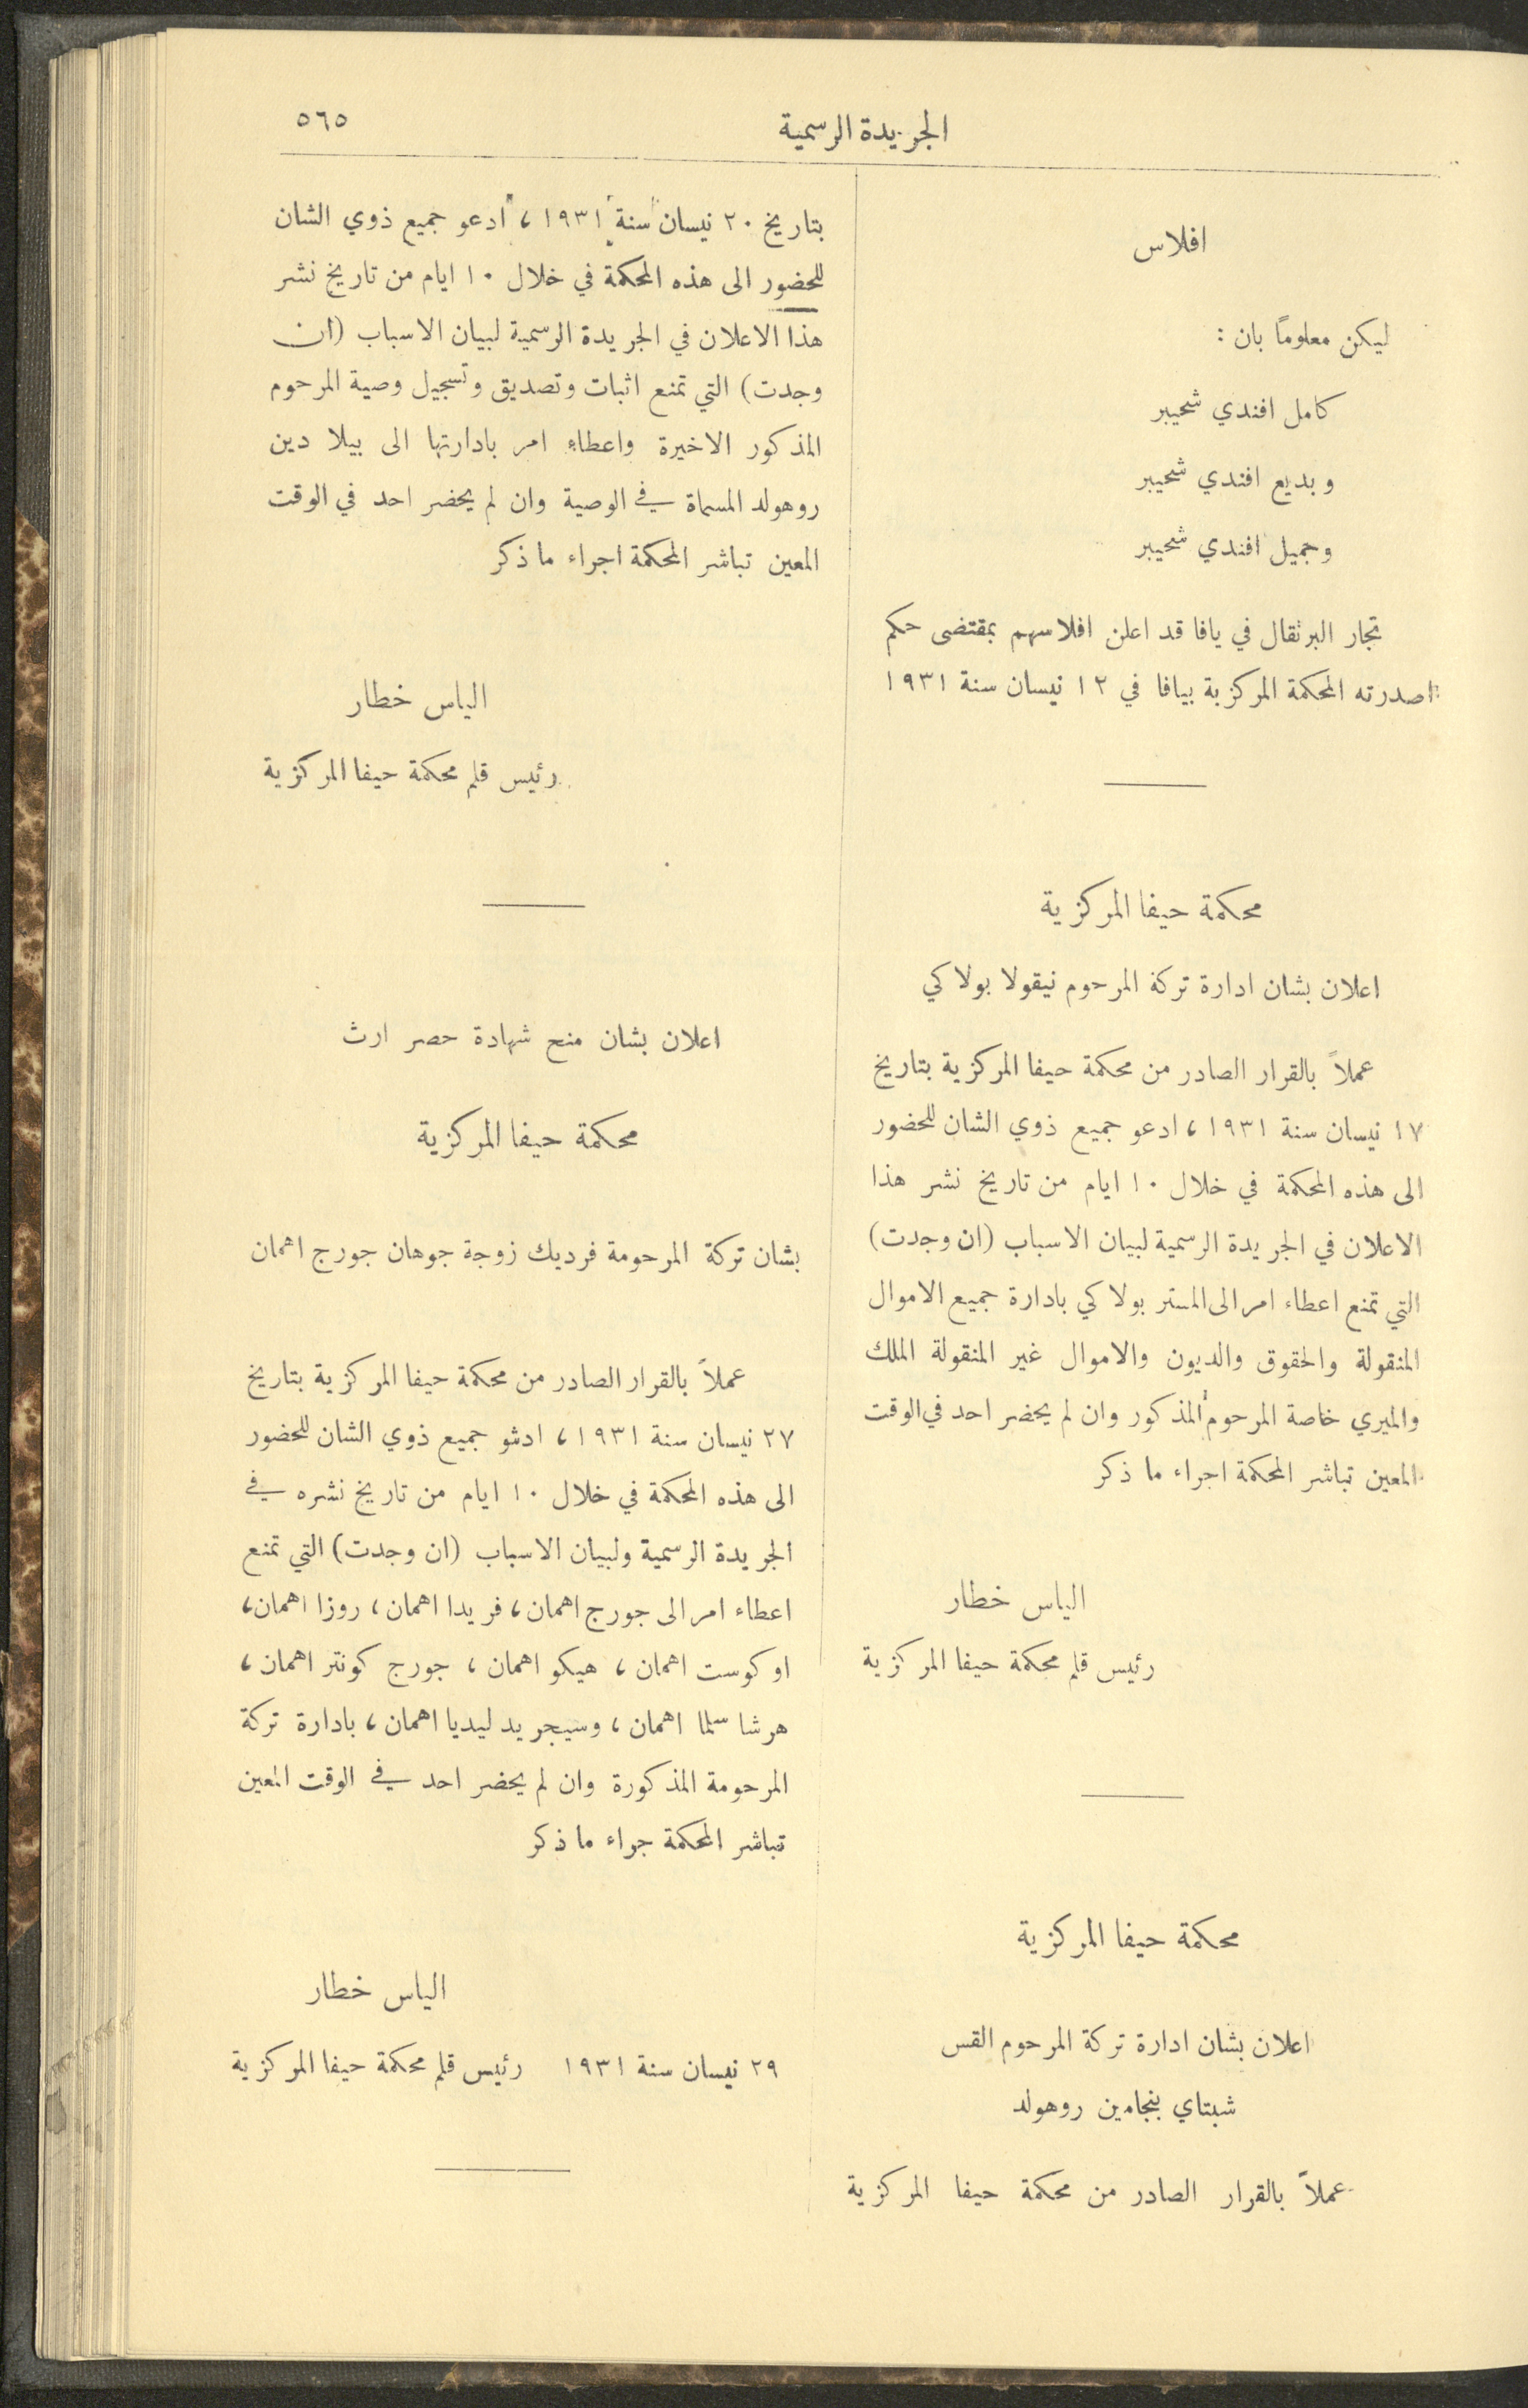 الجريدة الرسمية
٥٦٥
افلاس
ليكن معلوماً بان :
كامل افندي شحيبر
وبديع افندي شحيبر
وجميل افندي شحيبر
تجار البرتقال في يافا قد اعلن افلاسهم بمقتضى حكم
اصدرته المحكمة المركزية بيافا في ١٢ نيسان سنة ١٩٣١
محكمة حيفا المركزية
اعلان بشان ادارة تركة المرحوم نيقولا بولاكي
عملاً بالقرار الصادر من محكمة حيفا المركزية بتاريخ
١٧ نيسان سنة ١٩٣١ ، ادعو جميع ذوي الشان للحضور
الى هذه المحكمة في خلال ١٠ ايام من تاريخ نشر هذا
الاعلان في الجريدة الرسمية لبيان الاسباب (ان وجدت)
التي تمنع اعطاء امر الى المستر بولاكي بادارة جميع الاموال
المنقولة والحقوق والديون والاموال غير المنقولة الملك
والميري خاصة المرحوم المذكور وان لم يحضر احد في الوقت
المعين تباشر المحكمة اجراء ما ذكر
الياس خطار
رئيس قلم محكمة حيفا المركزية
محكمة حيفا المركزية
اعلان بشان ادارة تركة المرحوم القس
شبتاي بنجامين روهولد
عملاً بالقرار الصادر من محكمة حيفا المركزية
بتاريخ ٢٠ نيسان سنة ١٩٣١ ، ادعو جميع ذوي الشان
للحضور الى هذه المحكمة في خلال ١٠ ايام من تاريخ نشر
هذا الاعلان في الجريدة الرسمية لبيان الاسباب (ان
وجدت) التي تمنع اثبات وتصديق وتسجيل وصية المرحوم
المذكور الاخيرة واعطاء امر بادارتها الى بيلا دين
روهولد المسماة في الوصية وان لم يحضر احد في الوقت
المعين تباشر المحكمة اجراء ما ذكر
الياس خطار
رئيس قلم محكمة حيفا المركزية
اعلان بشان منح شهادة حصر ارث
محكمة حيفا المركزية
بشان تركة المرحومة فرديك زوجة جوهان جورج اهمان
عملاً بالقرار الصادر من محكمة حيفا المركزية بتاريخ
٢٧ نيسان سنة ١٩٣١ ، ادشو جميع ذوي الشان للحضور
الى هذه المحكمة في خلال ١٠ ايام من تاريخ نشره في
الجريدة الرسمية ولبيان الاسباب (ان وجدت) التي تمنع
اعطاء امر الى جورج اهمان ، فريدا اهمان ، روزا اهمان ،
اوكوست اهمان ، هيكو اهمان ، جورج كونتر اهمان ،
هرشا سلما اهمان ، وسيجريد ليديا اهمان ، بادارة تركة
المرحومة المذكورة وان لم يحضر احد في الوقت المعين
تباشر المحكمة جراء ما ذكر
الياس خطار
٢٩ نيسان سنة ١٩٣١ رئيس قلم محكمة حيفا المركزية